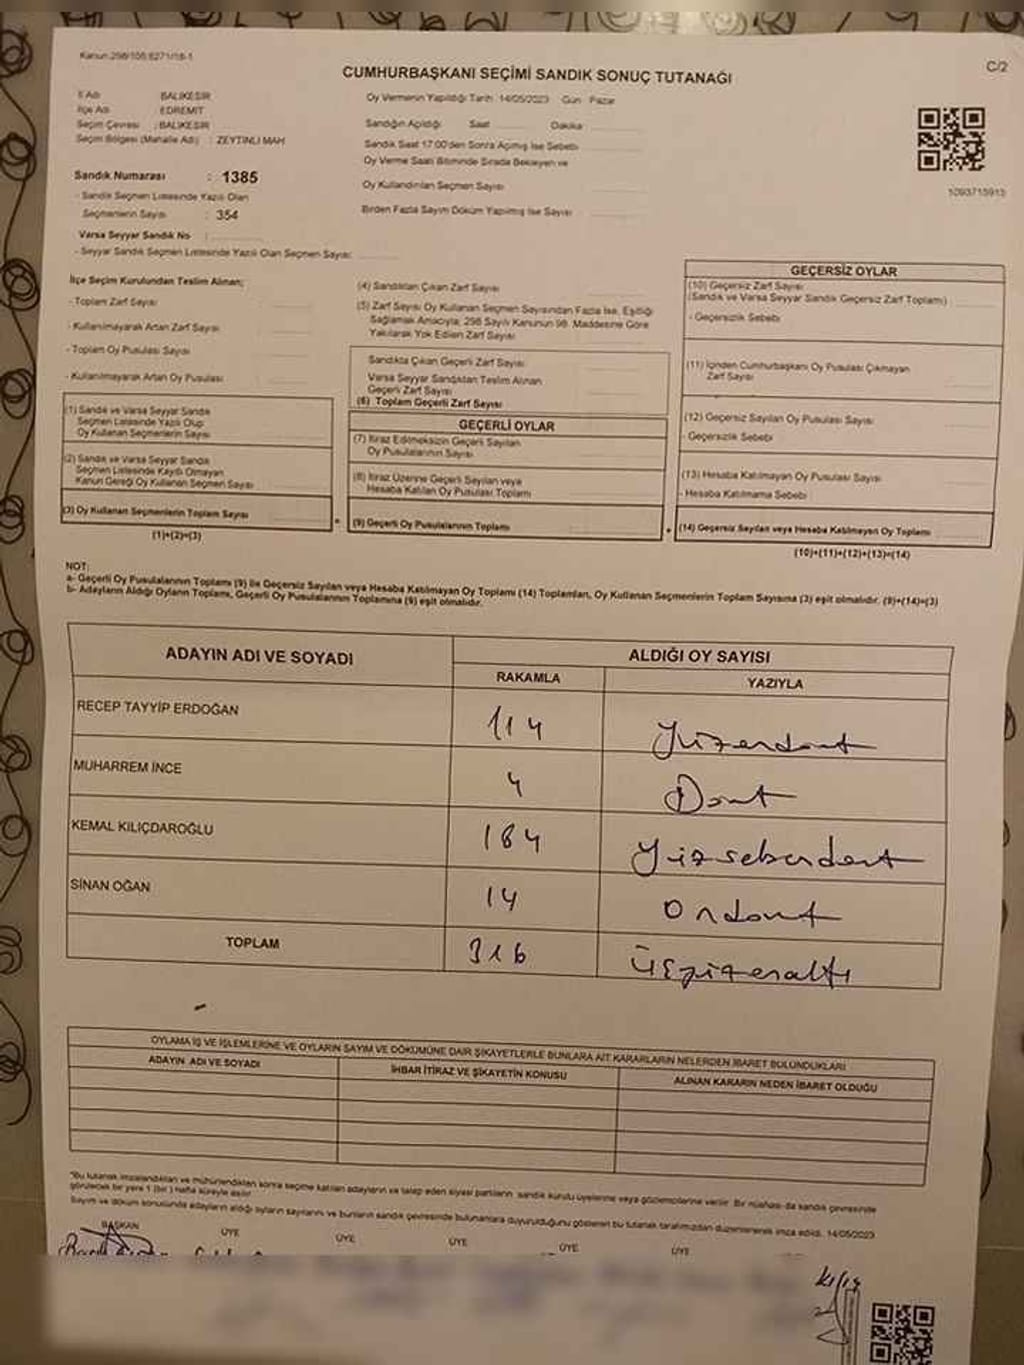 Kanun:298/105;6271/18-1
C/2
CUMHURBAŞKANI SEÇİMİ SANDIK SONUÇ TUTANAĞI
İl Adı BALIKESİR
İlçe Adı EDREMİT
Seçim Çevresi : BALIKESİR
Seçim Bölgesi (Mahalle Adı) : ZEYTİNLİ MAH
Sandık Numarası : 1385
- Sandık Seçmen Listesinde Yazılı Olan
Seçmenlerin Sayısı : 354
Varsa Seyyar Sandık No :
- Seyyar Sandık Seçmen Listesinde Yazılı Olan Seçmen Sayısı:
Oy Vermenin Yapıldığı Tarih :14/05/2023 Gün : Pazar
Sandığın Açıldığı Saat Dakika
Sandık Saat 17:00'den Sonra Açılmış İse Sebebi
Oy Verme Saati Bitiminde Sırada Bekleyen ve
Oy Kullandırılan Seçmen Sayısı
Birden Fazla Sayım Döküm Yapılmış İse Sayısı
1093715913
İlçe Seçim Kurulundan Teslim Alınan;
- Toplam Zarf Sayısı
- Kullanılmayarak Artan Zarf Sayısı
- Toplam Oy Pusulası Sayısı
- Kullanılmayarak Artan Oy Pusulası
(1) Sandık ve Varsa Seyyar Sandık
Seçmen Listesinde Yazılı Olup
Oy Kullanan Seçmenlerin Sayısı
(2) Sandık ve Varsa Seyyar Sandık
Seçmen Listesinde Kayıtlı Olmayan
Kanun Gereği Oy Kullanan Seçmen Sayısı
(3) Oy Kullanan Seçmenlerin Toplam Sayısı
(1)+(2)=(3)
(4) Sandıktan Çıkan Zarf Sayısı
(5) Zarf Sayısı Oy Kullanan Seçmen Sayısından Fazla İse, Eşitliği
Sağlamak Amacıyla, 298 Sayılı Kanunun 98. Maddesine Göre
Yakılarak Yok Edilen Zarf Sayısı
Sandıkta Çıkan Geçerli Zarf Sayısı
Varsa Seyyar Sandıktan Teslim Alınan
Geçerli Zarf Sayısı
(6) Toplam Geçerli Zarf Sayısı
GEÇERLİ OYLAR
(7) İtiraz Edilmeksizin Geçerli Sayılan
Oy Pusulalarının Sayısı
(8) İtiraz Üzerine Geçerli Sayılan veya
Hesaba Katılan Oy Pusulası Toplamı
(9) Geçerli Oy Pusulalarının Toplamı
GEÇERSİZ OYLAR
(10) Geçersiz Zarf Sayısı
(Sandık ve Varsa Seyyar Sandık Geçersiz Zarf Toplamı)
- Geçersizlik Sebebi
(11) İçinden Cumhurbaşkanı Oy Pusulası Çıkmayan
Zarf Sayısı
(12) Geçersiz Sayılan Oy Pusulası Sayısı
- Geçersizlik Sebebi
(13) Hesaba Katılmayan Oy Pusulası Sayısı
- Hesaba Katılmama Sebebi
(14) Geçersiz Sayılan veya Hesaba Katılmayan Oy Toplamı
(10)+(11)+(12)+(13)=(14)
NOT:
a- Geçerli Oy Pusulalarının Toplamı (9) ile Geçersiz Sayılan veya Hesaba Katılmayan Oy Toplamı (14) Toplamları, Oy Kullanan Seçmenlerin Toplam Sayısına (3) eşit olmalıdır. (9)+(14)=(3)
b- Adayların Aldığı Oyların Toplamı, Geçerli Oy Pusulalarının Toplamına (9) eşit olmalıdır.
ADAYIN ADI VE SOYADI ALDIĞI OY SAYISI
RAKAMLA YAZIYLA
RECEP TAYYİP ERDOĞAN 114 Yüzondört
MUHARREM İNCE 4 Dört
KEMAL KILIÇDAROĞLU 184 Yüzseksendört
SİNAN OĞAN 14 Ondört
TOPLAM 316 Üçyüzonaltı
OYLAMA İŞ VE İŞLEMLERİNE VE OYLARIN SAYIM VE DÖKÜMÜNE DAİR ŞİKAYETLERLE BUNLARA AİT KARARLARIN NELERDEN İBARET BULUNDUKLARI
ADAYIN ADI VE SOYADI İHBAR İTİRAZ VE ŞİKAYETİN KONUSU ALINAN KARARIN NEDEN İBARET OLDUĞU
*Bu tutanak imzalandıktan ve mühürlendikten sonra seçime katılan adayların ve talep eden siyasi partilerin sandık kurulu üyelerine veya gözlemcilerine verilir. Bir nüshası da sandık çevresinde
görülecek bir yere 1 (bir) hafta süreyle asılır.
Sayım ve döküm sonucunda adayların aldığı oyların sayılarını ve bunların sandık çevresinde bulunanlara duyurulduğunu gösteren bu tutanak tarafımızdan düzenlenerek imza edildi. 14/05/2023
BAŞKAN ÜYE ÜYE ÜYE ÜYE ÜYE